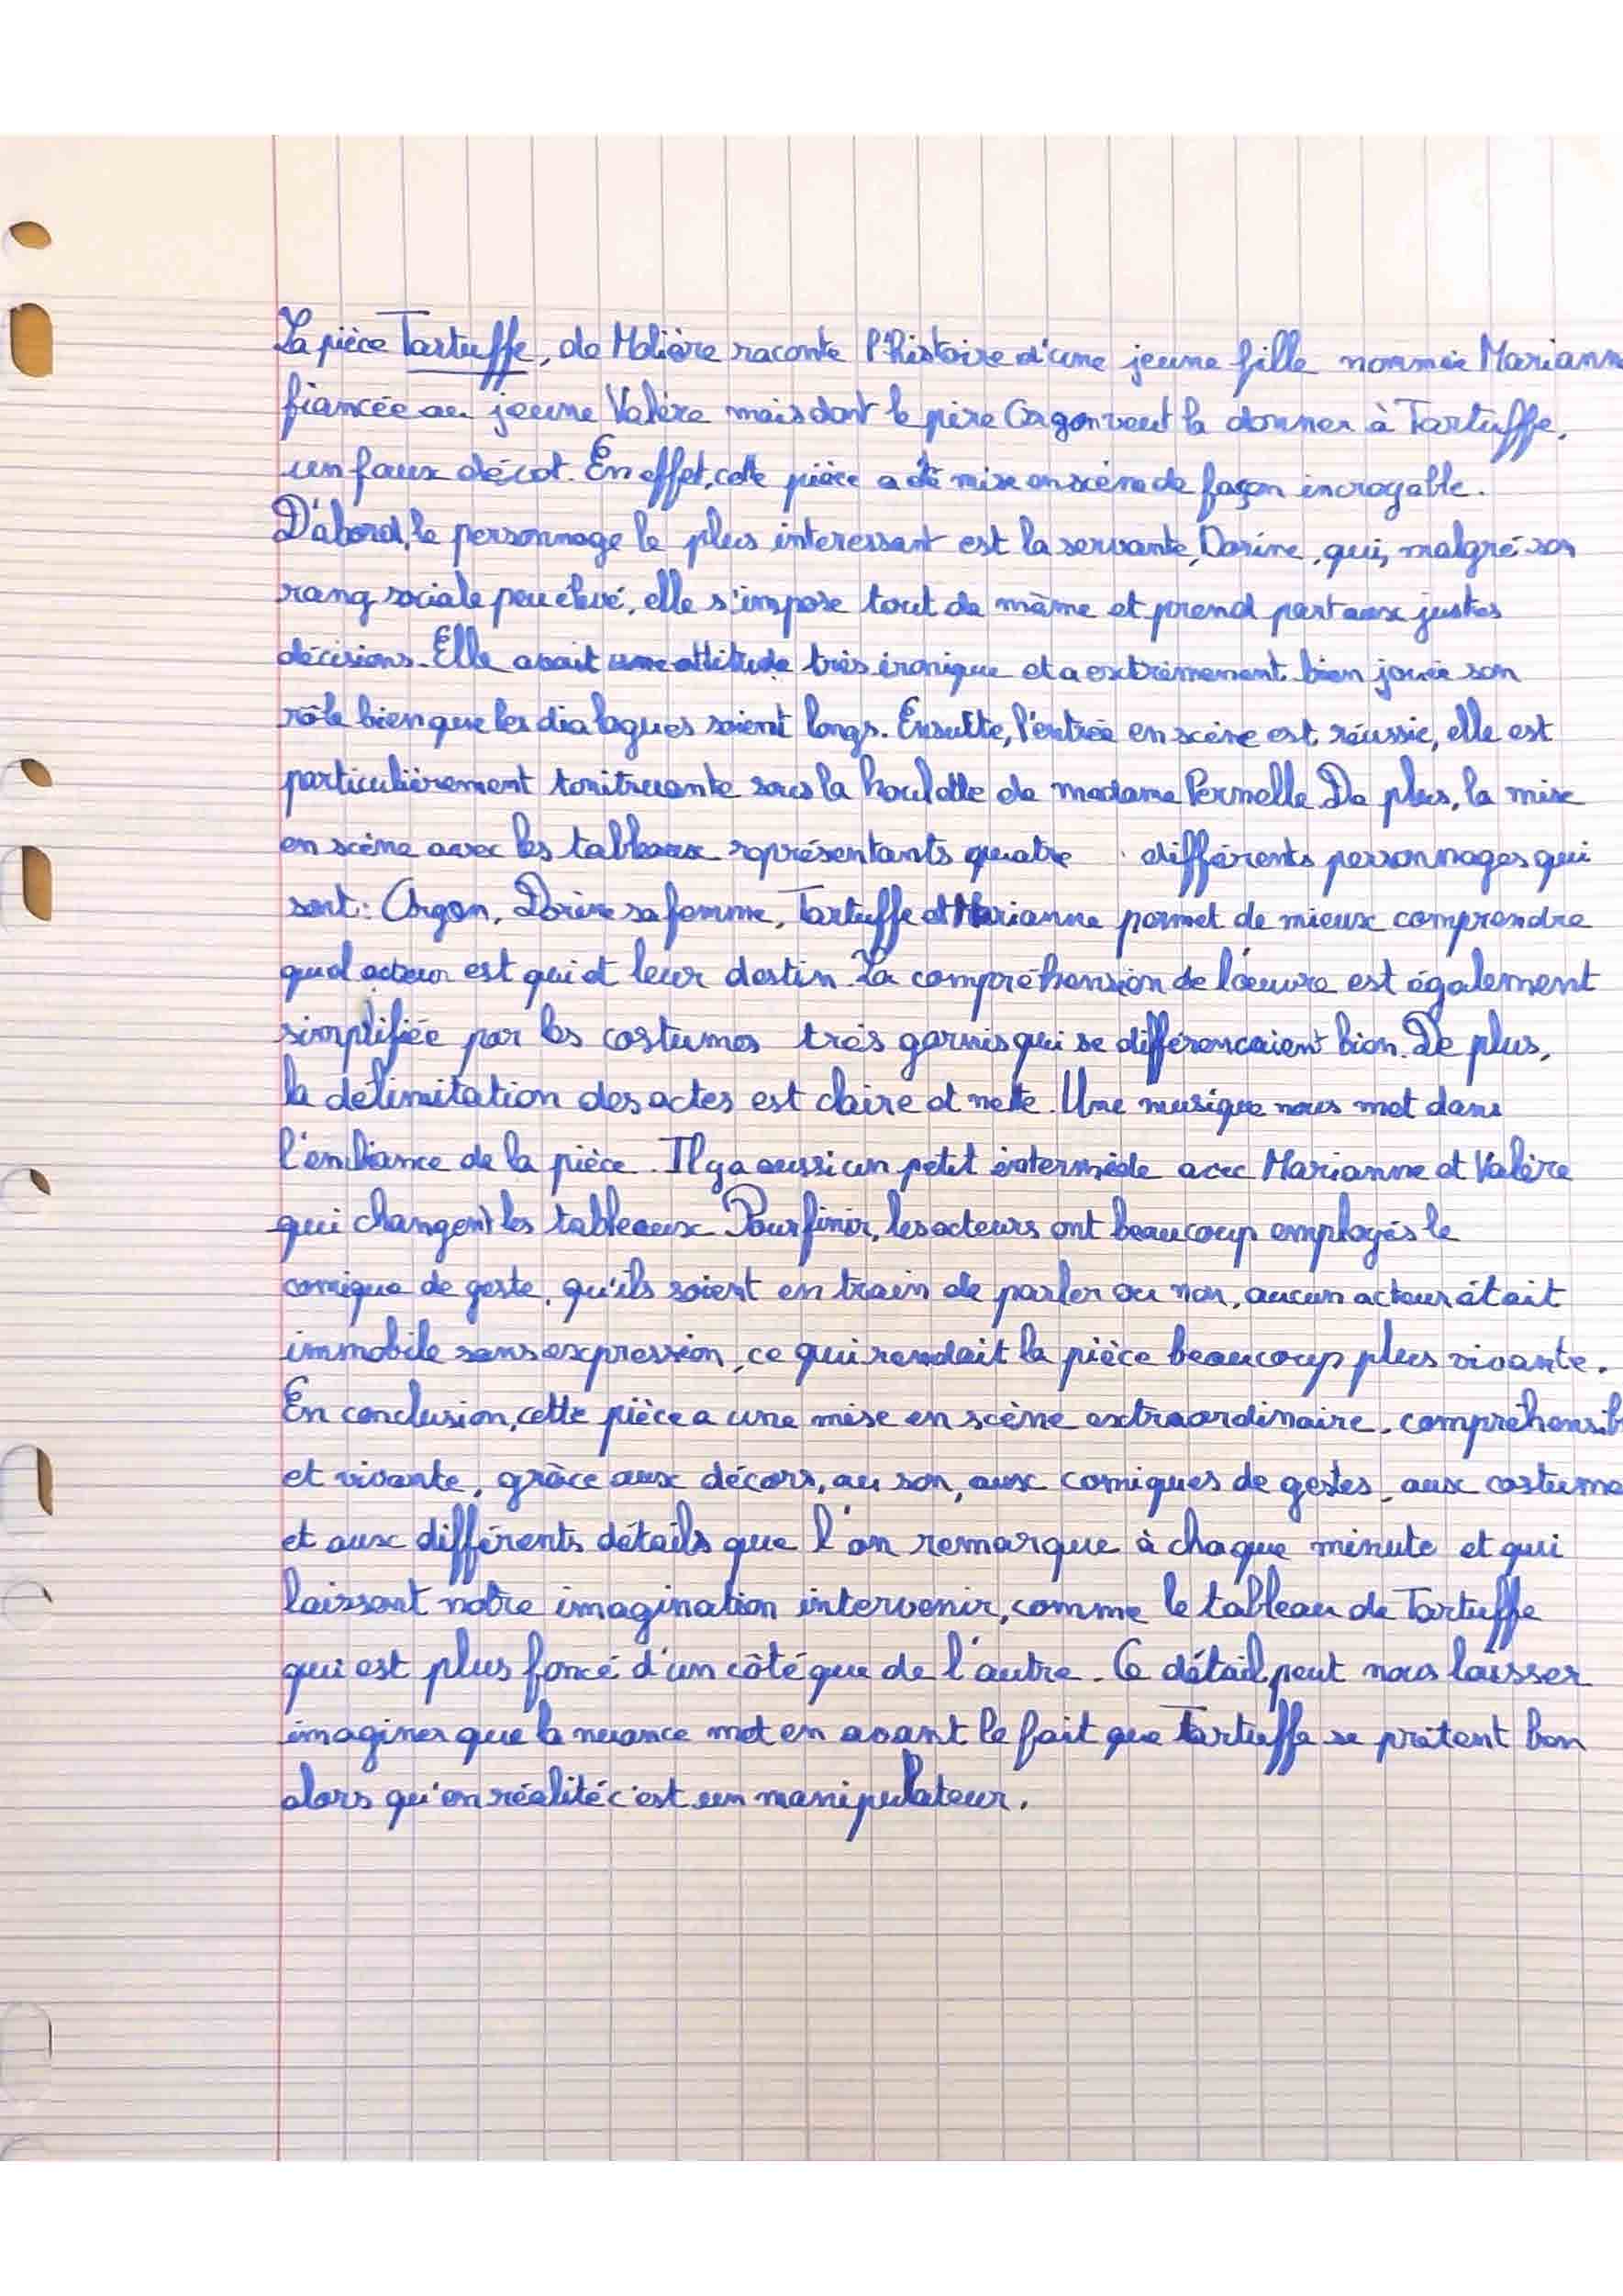 La pièce Tartuffe, de Molière raconte l'histoire d'une jeune fille nommée Mariann
fiancée au jeune Valère mais dont le père Orgon veut la donner à Tartuffe,
un faux dévot. En effet, cette pièce a été mise en scène de façon incroyable.
D'abord, le personnage le plus interessant est la servante, Dorine, qui, malgré son
rang sociale peu élevé, elle s'impose tout de même et prend part aux justes
décisions. Elle avait une attitude très ironique et a extrêmement bien jouée son
rôle bien que les dialogues soient longs. Ensuite, l'entrée en scène est réussie, elle est
particulièrement tonitruante sous la houlette de madame Pernelle. De plus, la mise
en scène avec les tableaux représentants quatre différents personnages qui
sont : Orgon, Dorine sa femme, Tartuffe et Marianne permet de mieux comprendre
quel acteur est qui et leur destin. La compréhension de l'oeuvre est également
simplifiée par les costumes très garnis qui se différenciaient bien. De plus,
la délimitation des actes est claire et nette. Une musique nous met dans
l'ambiance de la pièce. Il y a aussi un petit intermède avec Marianne et Valère
qui changent les tableaux. Pour finir, les acteurs ont beaucoup employés le
comique de geste, qu'ils soient en train de parler ou non, aucun acteur était
immobile sans expression, ce qui rendait la pièce beaucoup plus vivante.
En conclusion, cette pièce a une mise en scène extraordinaire, compréhensib
et vivante, grâce aux décors, au son, aux comiques de gestes, aux costume
et aux différents détails que l'on remarque à chaque minute et qui
laissent notre imagination intervenir, comme le tableau de Tartuffe
qui est plus foncé d'un côté que de l'autre. Ce détail peut nous laisser
imaginer que la nuance met en avant le fait que Tartuffe se prétent bon
alors qu'en réalité c'est un manipulateur.